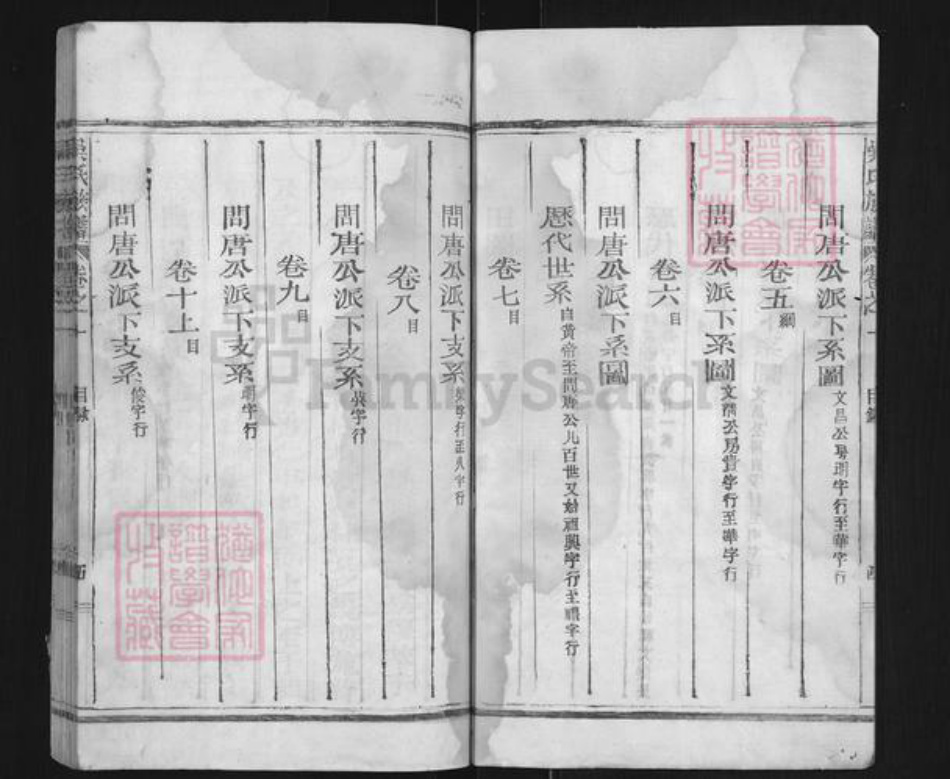 問唐公派下系圖 文昌公房 字行至華字行
卷五
問唐公派下系圖 文 公房 字行至華字行
卷六 目
問唐公派下系圖
歷代世系 自黃帝至問唐公凡百世又始祖興字行至 字行
卷七 目
問唐公派下支系 字行至八字行
卷八 目
問唐公派下支系 字行
卷九 目
問唐公派下支系 字行
卷十上 目
問唐公派下支系 字行
吳氏族譜 卷之一 目錄
吳氏族譜 卷之一 目錄
譜學會
收藏
譜學會
收藏
FamilySearch